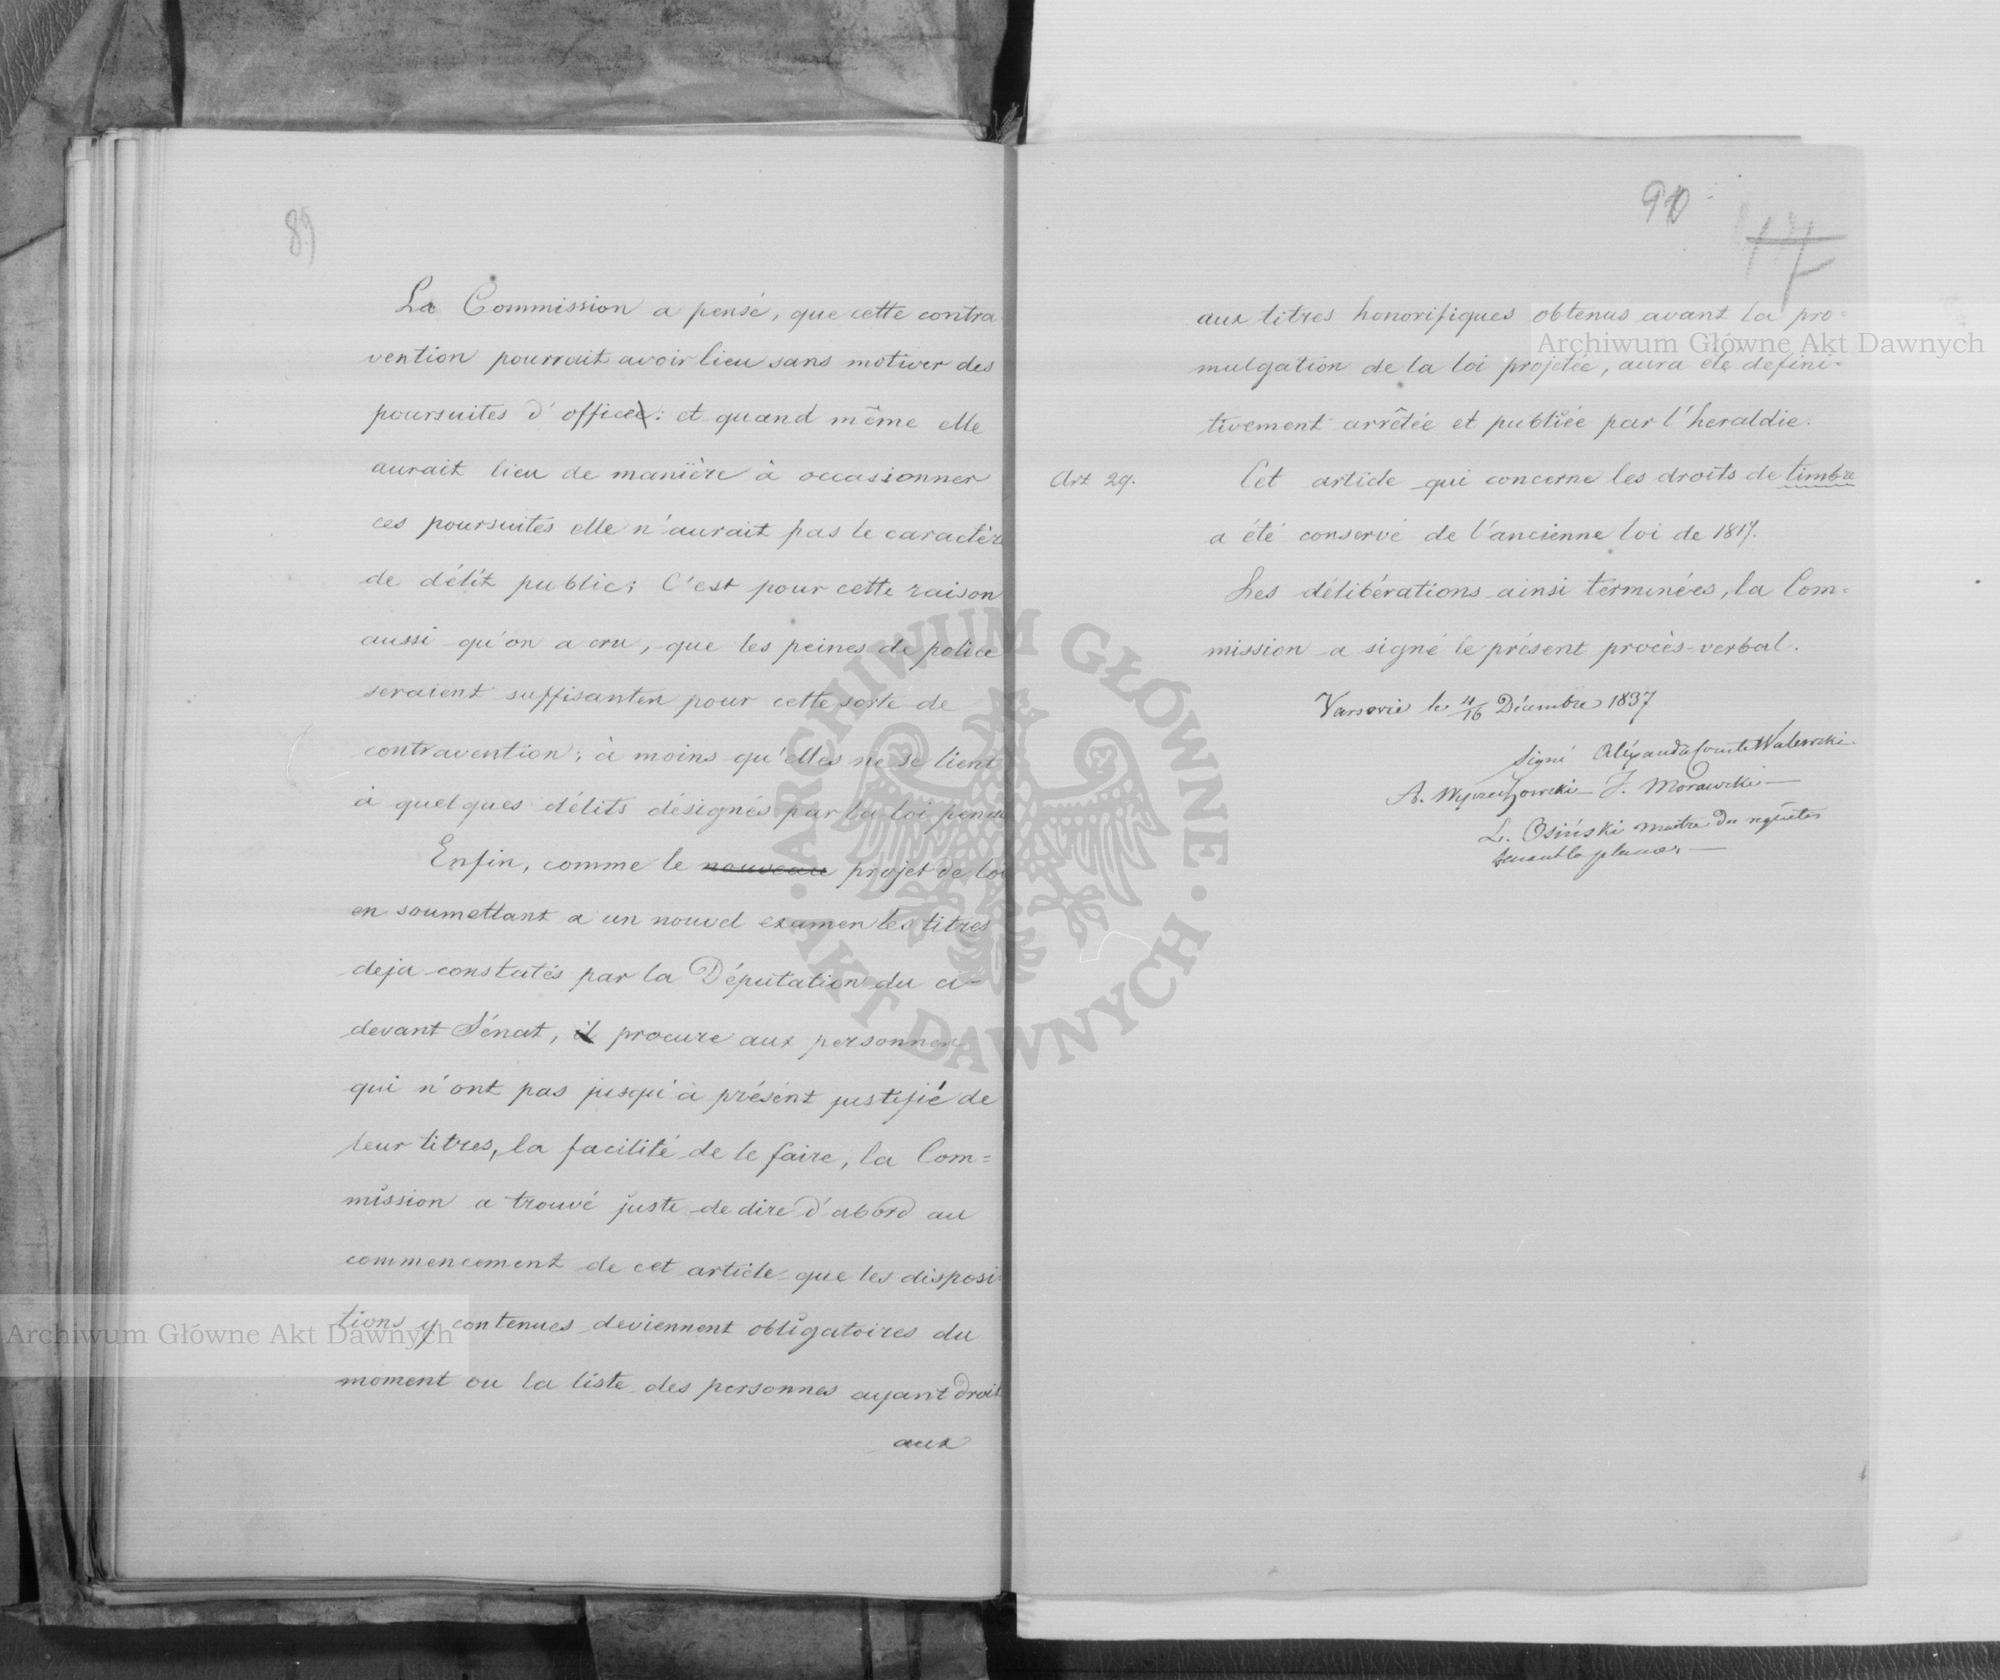 89
La Commission a pensé, que cette contra
vention pourrait avoir lieu sans motiver des
poursuites d'office: et quand même elle
aurait lieu de manière à occasionner
ces poursuites elle n'aurait pas le caractèr
de délit public; C'est pour cette raison
aussi qu'on a cru, que les peines de police
seraient suffisantes pour cette sorte de
contravention; à moins qu'elles ne se lient
à quelques délits désignés par la loi
Enfin, comme le nouveau projet de loi
en soumettant a un nouvel examen les titres
deja constatés par la Députation du ci-
devant Sénat, il procure aux personnes
qui n'ont pas jusqu'à présent justifié de
leur titres, la facilité de le faire, la Com=
mission a trouvé juste de dire d'abord au
commencement de cet article que les disposi
tions y contenues deviennent obligatoires du
moment ou la liste des personnes ayant droit
aux
90
47
aux titres honorifiques obtenus avant la pro=
mulgation de la loi projetée, aura éte defini=
tivement arrêtée et publiée par l'heraldie.
Art 29.
Cet article qui concerne les droits de timbre
a été conservé de l'ancienne loi de 1817.
Les délibérations ainsi terminées, la Com=
mission a signé le présent procès-verbal.
Varsovie le 4/16 Décembre 1837
Signé Aléxandre Comte Walewski
A. Wyczechowski J. Morawski
L. Osiński maitre des requêtes
tenant la plume.
Archiwum Główne Akt Dawnych
Archiwum Główne Akt Dawnych
ARCHIWUM GŁÓWNE · AKT DAWNYCH ·